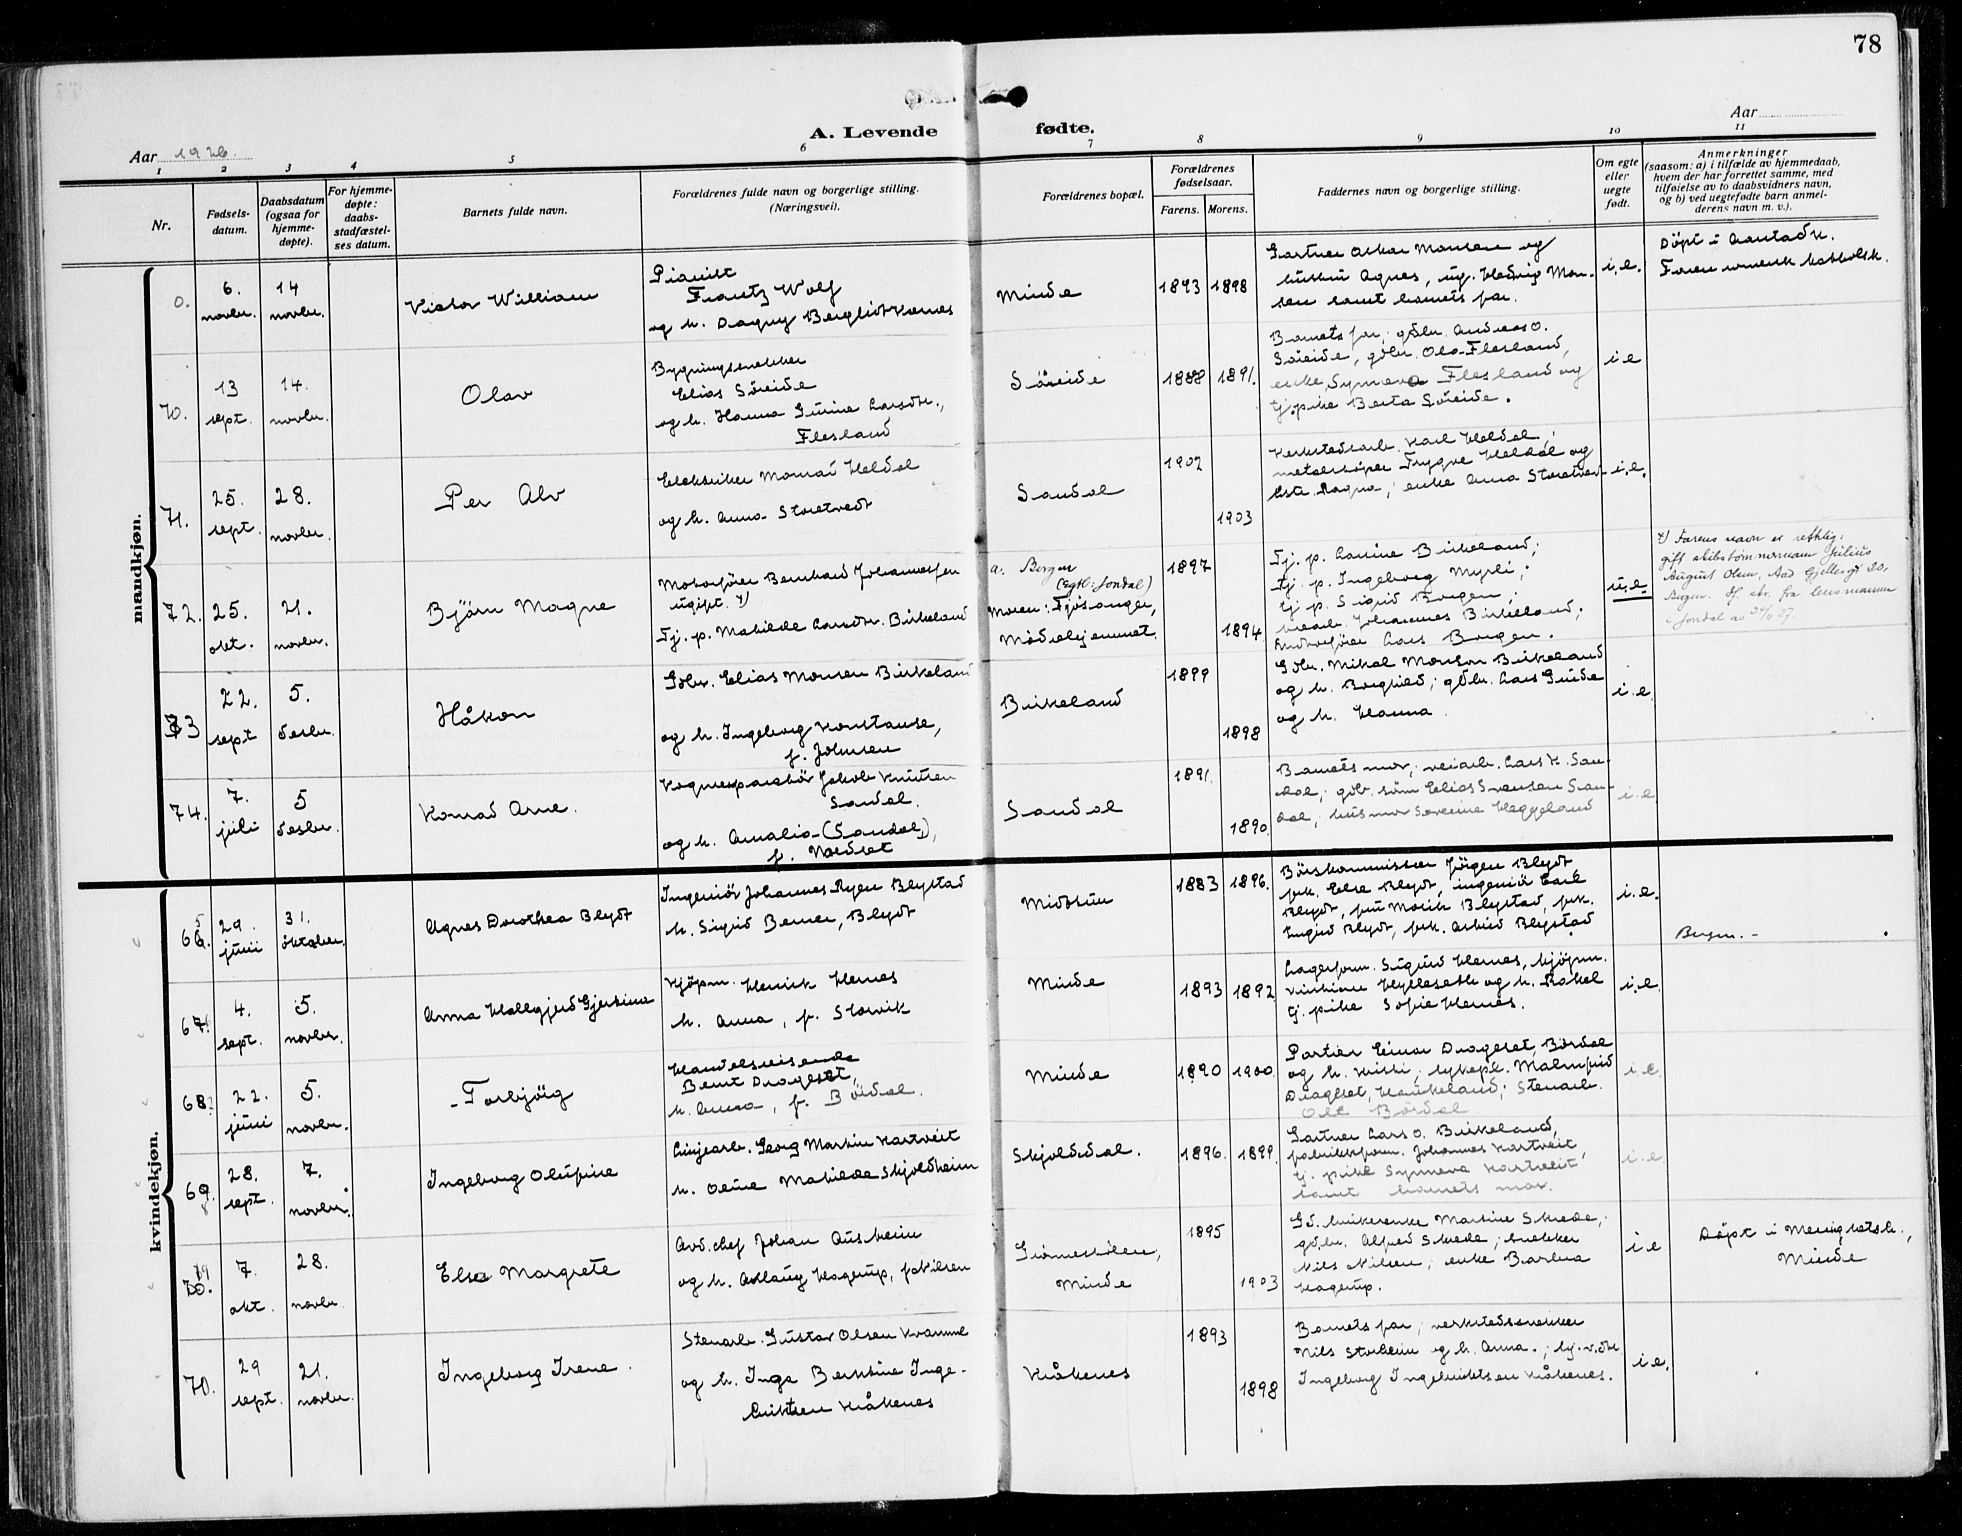 78
A. Levende fødte.
Aar 1926
Aar
1 2 3 4 5 6 7 8 9 10 11
Nr.
Fødsels-
datum.
Daabsdatum
(ogsaa for
hjemme-
døpte).
For hjemme-
døpte:
daabs-
stadfæstel-
ses datum.
Barnets fulde navn.
Forældrenes fulde navn og borgerlige stilling.
(Næringsvei).
Forældrenes bopæl.
Forældrenes
fødselsaar.
Farens. Morens.
Faddernes navn og borgerlige stilling.
Om egte
eller
uegte
født.
Anmerkninger
(saasom: a) i tilfælde av hjemmedaab,
hvem der har forrettet samme, med
tilføielse av to daabsvidners navn,
og b) ved uegtefødte barn anmel-
derens navn m. v.).
mandkjøn.
0.
6.
novbr.
14
novbr.
Victor William
Pianist
Frantz Wolf
og h. Dagny Bergliot Hernes
Minde
1893 1898
Gartner Oskar Monsen og
hustru Agnes, ug. Hedvig Mon-
sen samt barnets far.
i.e.
Döpt i
Faren romersk katholsk.
70.
13
sept.
14.
novbr.
Olav
Bygningssnekker
Elias Söreide
og h. Hanna Gurine Larsdtr.,
Flesland
Söreide
1888 1891.
Barnets far; gdbr. Andreas O.
Söreide, gdbr. Ola Flesland,
enke Synneva Flesland og
tj.pike Berta Söreide.
i.e
71.
25.
sept.
28.
novbr.
Per Alv
Elektriker Heldal
og h. Anna Storetvedt
Sandal
1902
1903
Verkstedarb. Karl Heldal;
Trygve Heldal og
Ragna; enke Anna Storetvedt
i.e.
72.
25.
okt.
21.
novbr.
Björn Magne
Motorförer Bernhard Johannessen
ugift. x)
Tj. p. Mathilde Larsdtr. Birkeland
a. Bergen
(egtl: Jondal)
Moren: Fjösanger,
Mödrehjemmet.
1897
1894
Tj. p. Larine Birkeland;
tj. p. Ingeborg Myrli;
tj p. Sigrid Borgen;
Johannes Birkeland;
Lars Borgen.
u.e.
x) Farens navn er rettelig:
gift skibstømmermann Julius
August Olsen, Aad Gjellesgt 20,
Bergen. Jf. skr. fra lensmannen
i Jondal av 24/11 37.
73
22.
sept
5.
desbr.
Håkon
Gdbr. Elias Monsen Birkeland
og h. Ingeborg Konstanse,
f. Johnsen
Birkeland
1899
1898
Gdbr. Mikal Monsen Birkeland
og h. Borghild; gdbr. Lars Grüde
og h. Hanna.
i.e.
74.
7.
juli
5
desbr.
Konrad Arne.
Vognreparatör Jakob Knutsen
Sandal.
og h. Amalia (Sandal),
f. Nordset
Sandal
1891.
1890.
Barnets mor; veiarb. Lars K. San-
dal; gdbr. sönn Elias Svensen San-
dal; husmor Severine Heggeland
i.e.
kvindekjøn.
66.
29.
juni
31.
oktober.
Agnes Dorothea Blydt
Ingeniör Johannes Ryen Blystad
h. Sigrid Berner, Blydt
Midttun
1883 1896.
Börskommissær Jörgen Blydt,
frk. Else Blydt, ingeniör Carl
Blydt, fru Blystad, frk.
Ingrid Blydt, frk. Blystad
i.e.
Bergen. -
67.
4.
sept.
5.
novbr.
Anna Hallgjerd Gjertine
Kjöpm. Henrik Hernes
h. Anna, f. Storvik
Minde
1893 1892
Lagerform. Sigurd Hernes, kjöpm.
Kristian Hylleseth og h. Rakel
tj. pike Sofie Hernes.
i.e.
68.
22.
juni
5.
novbr.
Torbjörg
Handelsreisende
Bernt Drageset,
h. Anna, f. Bördal.
Minde
1890 1900
Portier Einar Drageset, Bördal
og h. Kitti; sykepl. Malmfrid
Drageset, Haukeland; Stenarb.
Ole Bördal
i.e.
69.
28.
sept.
7.
novbr.
Ingeborg Olufine
Linjearb. Georg Martin Hartveit
h. Olina Mathilde Skjoldheim
Skjolddal.
1896. 1899.
Gartner Lars O. Birkeland,
fabrikkform. Johannes Hartveit,
tj. pike Synneva Hartveit
samt barnets mor.
i.e
70.
7.
okt.
28.
novbr.
Else Margrete
Avd. chef Johan Austheim
og h. Aslaug Hagerup, f. Nilsen
Grönnestölen,
Minde
1895
1903
Gd. brukerenke Martine Skrede;
gdbr. Alfred Skrede; snekker
Nils Nilsen; enke Barbra
Hagerup.
i.e
Döpt i Menighetsh.,
Minde
70.
29
sept.
21.
novbr.
Ingeborg Irene.
Stenarb. Gustav Olsen Kramme
og h. Inga Bertine Inge-
briktsen Kråkenes
Kråkenes
1893
1898
Barnets far; verkstedsnekker
Nils Storheim og h. Anna;
Ingeborg Ingebriktsen Kråkenes.
i.e.